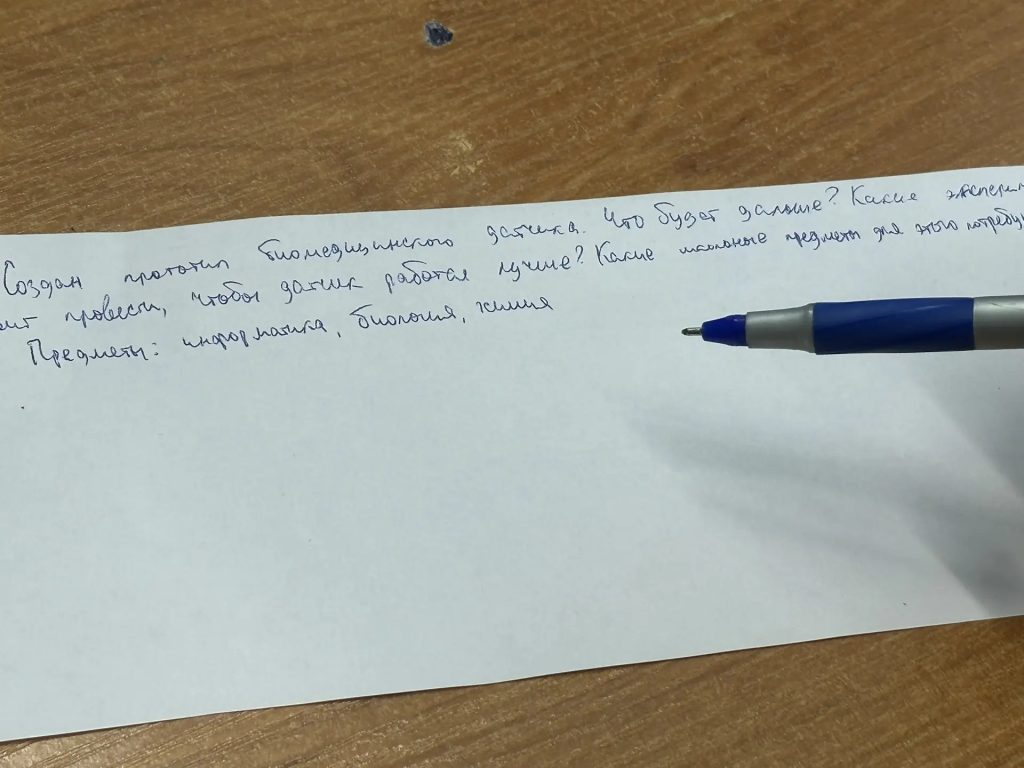 Создан прототип биомедицинского датчика. Что будет дальше? Какие
провести, чтобы датчик работал лучше? Какие школьные предметы для этого
Предметы: информатика, биология, химия